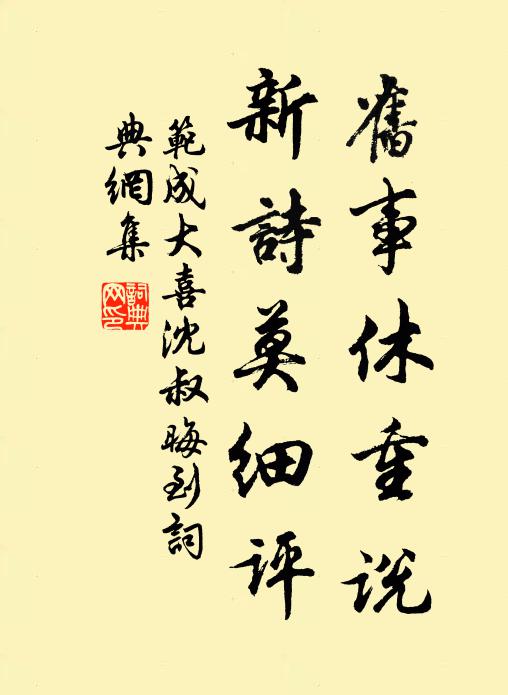 舊事休重説
新詩莫細評
範成大喜沈叔晦到詞
典網集
詞典
网印